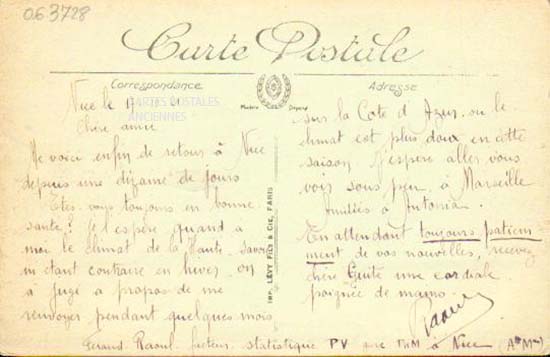 063728
Carte Postale
Correspondance
Adresse
Modèle Déposé
CARTES POSTALES
ANCIENNES
Nice le 17
Chère amie
Me voici enfin de retour à Nice
depuis une dizaine de jours
Êtes vous toujours en bonne
santé? Je l'espère quand à
moi le climat de la Haute-Savoie
m'étant contraire en hiver, on
a jugé à propos de me
renvoyer pendant quelques mois
sur la Côte d'Azur où le
climat est plus doux en cette
saison. J'espère aller vous
voir sous peu à Marseille
Amitiés à Antonia.
En attendant toujours patiem
ment de vos nouvelles, recevez
chère Guite une cordiale
poignée de mains.
Raoul
Géraud Raoul facteur statistique PV gare PLM à Nice (Aes Mmes)
IMP. LÉVY FILS & CIE, PARIS